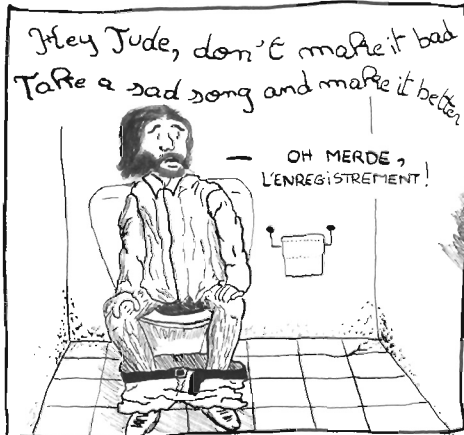 Hey Jude, don't make it bad
Take a sad song and make it better
— OH MERDE,
L'ENREGISTREMENT!